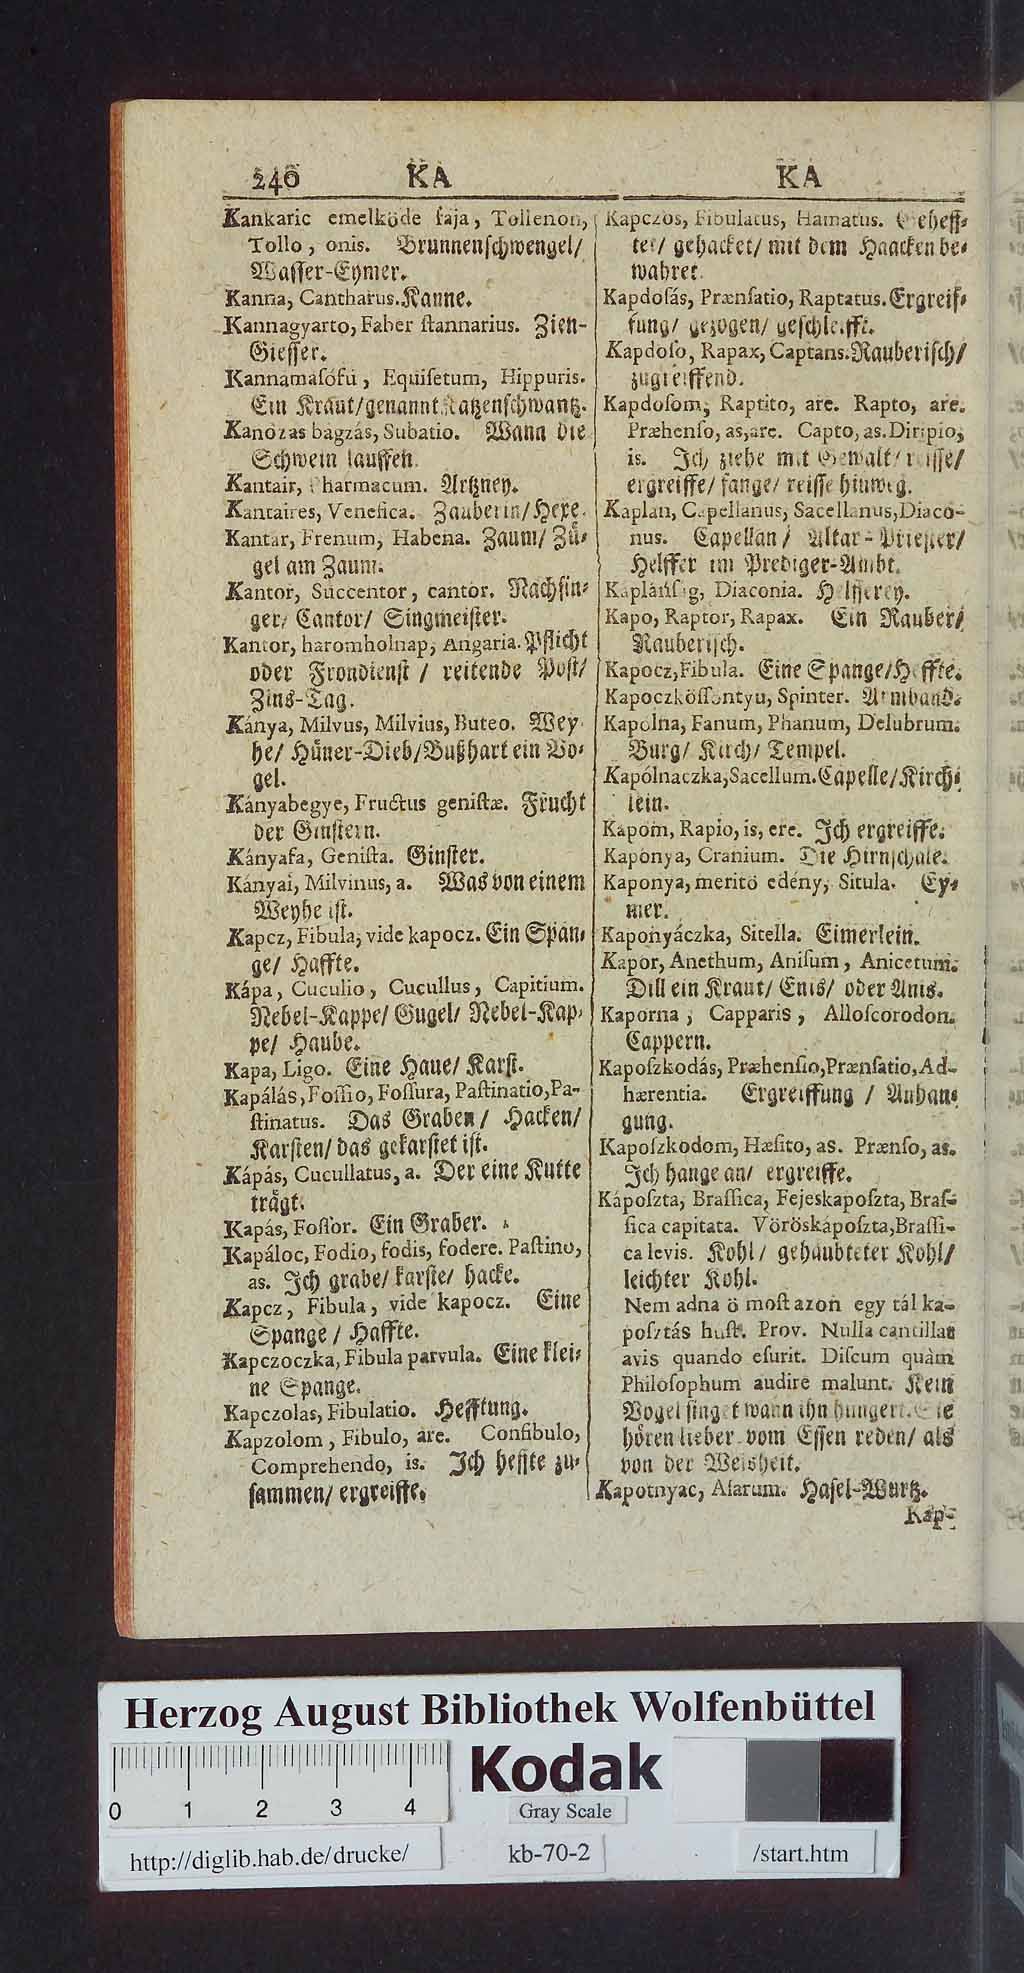 240 KA KA
Kankaric emelköde faja, Tollenon,
Tollo, onis. Brunnenſchwengel/
Waſſer-Eymer.
Kanna, Cantharus. Kanne.
Kannagyarto, Faber ſtannarius. Zien-
Gieſſer.
Kannamaſófü, Equiſetum, Hippuris.
Ein Kraut/genannt Katzenſchwantz.
Kanozas bagzás, Subatio. Wann die
Schwein lauffen.
Kantair, Pharmacum. Artzney.
Kantaires, Venefica. Zauberin/Hexe.
Kantár, Frenum, Habena. Zaum/ Zů-
gel am Zaum.
Kantor, Succentor, cantor. Nachſin-
ger/ Cantor/ Singmeiſter.
Kantor, haromholnap, Angaria. Pflicht
oder Frondienſt / reitende Poſt/
Zins-Tag.
Kánya, Milvus, Milvius, Buteo. Wey-
he/ Hůner-Dieb/Bußhart ein Vo-
gel.
Kányabegye, Fructus geniſtæ. Frucht
der Ginſtern.
Kányafa, Geniſta. Ginſter.
Kányai, Milvinus, a. Was von einem
Weyhe iſt.
Kapcz, Fibula, vide kapocz. Ein Span-
ge/ Haffte.
Kápa, Cuculio, Cucullus, Capitium.
Nebel-Kappe/ Gugel/ Nebel-Kap-
pe/ Haube.
Kapa, Ligo. Eine Haue/ Karſt.
Kapálás, Foſſio, Foſſura, Paſtinatio, Pa-
ſtinatus. Das Graben/ Hacken/
Karſten/ das gekarſtet iſt.
Kápás, Cucullatus, a. Der eine Kutte
trågt.
Kapás, Foſſor. Ein Graber.
Kapáloc, Fodio, fodis, fodere. Paſtino,
as. Ich grabe/ karſte/ hacke.
Kapcz, Fibula, vide kapocz. Eine
Spange / Haffte.
Kapczoczka, Fibula parvula. Eine klei-
ne Spange.
Kapczolas, Fibulatio. Hefftung.
Kapzolom, Fibulo, are. Confibulo,
Comprehendo, is. Ich heffte zu-
ſammen/ ergreiffe.
Kapczos, Fibulatus, Hamatus. Geheff-
tet/ gehacket/ mit dem Haacken be-
wahret.
Kapdoſás, Prænſatio, Raptatus. Ergreif-
fung/ gezogen/ geſchleifft.
Kapdoſo, Rapax, Captans. Rauberiſch/
zugreiffend.
Kapdoſom, Raptito, are. Rapto, are.
Præhenſo, as, are. Capto, as. Diripio,
is. Ich ziehe mit Gewalt/ reiſſe/
ergreiffe/ fange/ reiſſe hinweg.
Kaplan, Capellanus, Sacellanus, Diaco-
nus. Capellan/ Altar-Prieſter/
Helffer im Prediger-Ambt.
Káplánſág, Diaconia. Helfferey.
Kapo, Raptor, Rapax. Ein Rauber/
Rauberiſch.
Kapocz, Fibula. Eine Spange/Heffte.
Kapoczköſſöntyu, Spinter. Armband.
Kapolna, Fanum, Phanum, Delubrum.
Burg/ Kirch/ Tempel.
Kapólnaczka, Sacellum. Capelle/Kirch-
lein.
Kapom, Rapio, is, ere. Ich ergreiffe.
Kaponya, Cranium. Die Hirnſchale.
Kaponya, meritö edény, Situla. Ey-
mer.
Kaponyáczka, Sitella. Eimerlein.
Kapor, Anethum, Aniſum, Anicetum.
Dill ein Kraut/ Enis/ oder Anis.
Kaporna, Capparis, Alloſcorodon.
Cappern.
Kapoſzkodás, Præhenſio, Prænſatio, Ad-
hærentia. Ergreiffung / Anhan-
gung.
Kapoſzkodom, Hæſito, as. Prænſo, as.
Ich hange an/ ergreiffe.
Káposzta, Braſſica, Fejeskapoſzta, Braſ-
ſica capitata. Vöröskápoſzta, Braſſi-
ca levis. Kohl/ gehaubteter Kohl/
leichter Kohl.
Nem adna ö moſt azon egy tál ka-
poſztás huſt. Prov. Nulla cantillat
avis quando eſurit. Diſcum quàm
Philoſophum audire malunt. Kein
Vogel ſinget wann ihn hungert. Sie
hören lieber vom Eſſen reden/ als
von der Weisheit.
Kapotnyac, Aſarum. Haſel-Wurtz.
Kap-
Herzog August Bibliothek Wolfenbüttel
Kodak
0 1 2 3 4
Gray Scale
http://diglib.hab.de/drucke/ kb-70-2 /start.htm